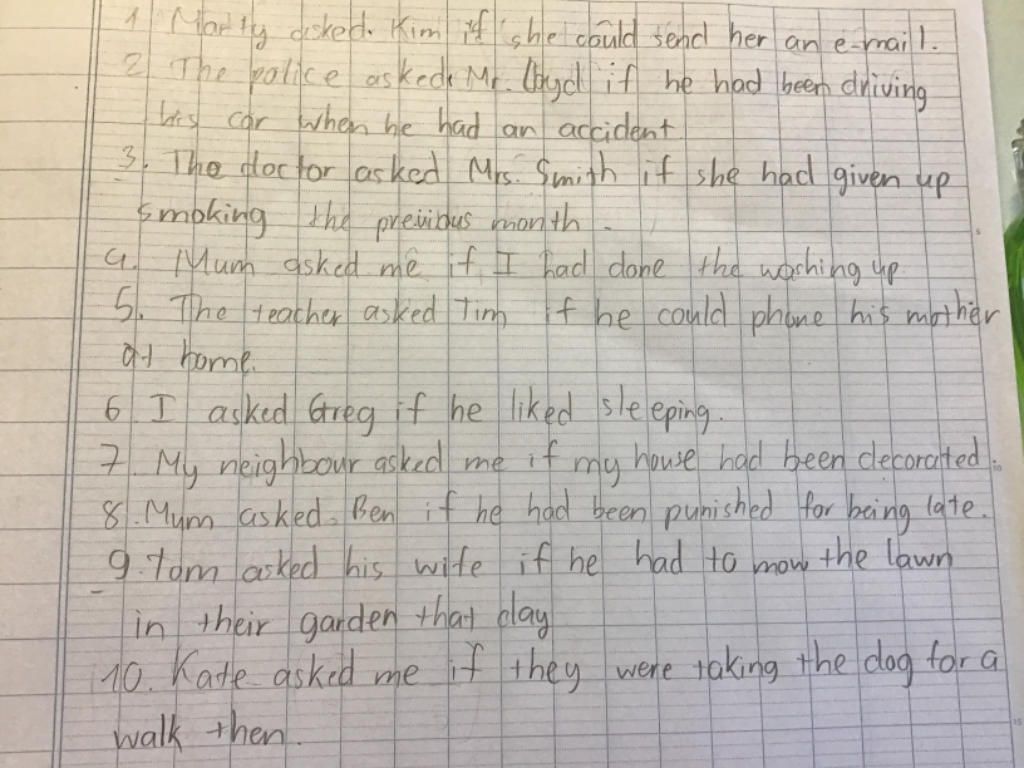 1 Marty asked Kim if she could send her an e-mail.
2 The police asked Mr. Lloyd if he had been driving
his car when he had an accident
3. The doctor asked Mrs. Smith if she had given up
smoking the previous month.
4. Mum asked me if I had done the waching up
5. The teacher asked Tim if he could phone his mother
at home.
6 I asked Greg if he liked sleeping.
7. My neighbour asked me if my house had been decorated.
8. Mum asked Ben if he had been punished for being late.
9. Tom asked his wife if he had to mow the lawn
in their garden that day
10. Kate asked me if they were taking the dog for a
walk then.